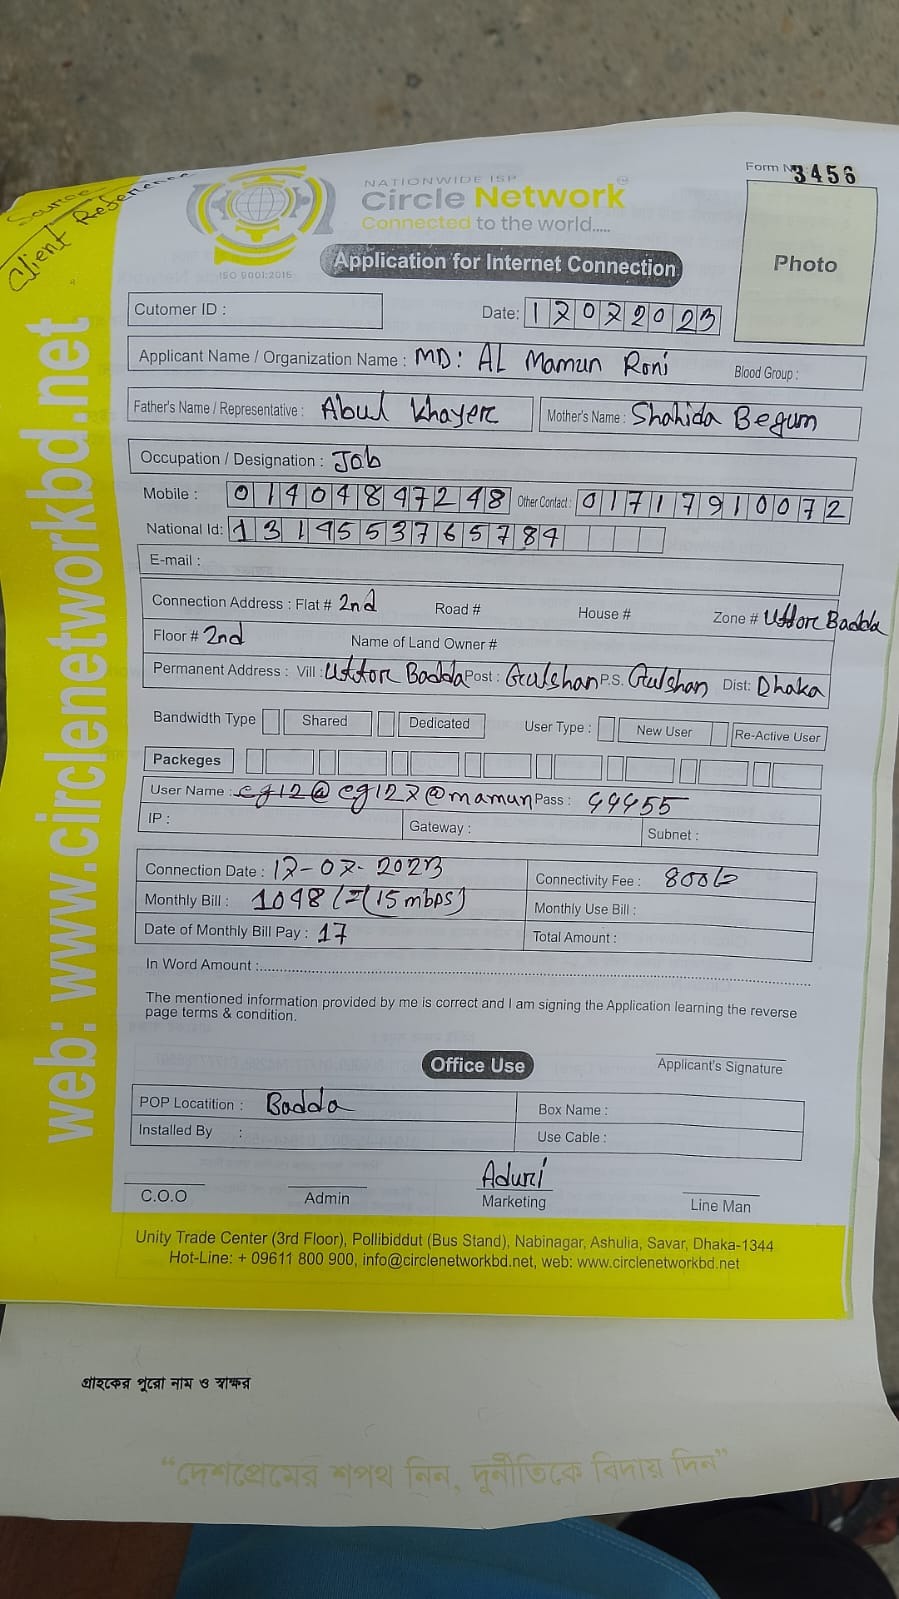 Source
Client Reference
NATIONWIDE ISP
Circle Network
Connected to the world.....
ISO 9001:2015
Form N 3456
Photo
Application for Internet Connection
Cutomer ID :
Date: 17072023
Applicant Name / Organization Name : MD: AL Mamun Roni Blood Group :
Father's Name / Representative : Abul Khayer Mother's Name : Shahida Begum
Occupation / Designation : Job
Mobile : 01404847248 Other Contact : 01717910072
National Id: 1319553765784
E-mail :
Connection Address : Flat # 2nd Road # House # Zone # Uttor Badda
Floor # 2nd Name of Land Owner #
Permanent Address : Vill : Uttor Badda Post : Gulshan P.S. Gulshan Dist: Dhaka
Bandwidth Type Shared Dedicated User Type : New User Re-Active User
Packeges
User Name : cg12@ cg127@mamun Pass : 44455
IP : Gateway : Subnet :
Connection Date : 17-07-2023 Connectivity Fee : 800/=
Monthly Bill : 1048/=(15 mbps) Monthly Use Bill :
Date of Monthly Bill Pay : 17 Total Amount :
In Word Amount :
The mentioned information provided by me is correct and I am signing the Application learning the reverse
page terms & condition.
Applicant's Signature
Office Use
POP Locatition : Badda Box Name :
Installed By : Use Cable :
Aduri
C.O.O Admin Marketing Line Man
Unity Trade Center (3rd Floor), Pollibiddut (Bus Stand), Nabinagar, Ashulia, Savar, Dhaka-1344
Hot-Line: + 09611 800 900, info@circlenetworkbd.net, web: www.circlenetworkbd.net
web: www.circlenetworkbd.net
গ্রাহকের পুরো নাম ও স্বাক্ষর
“দেশপ্রেমের শপথ নিন, দুর্নীতিকে বিদায় দিন”